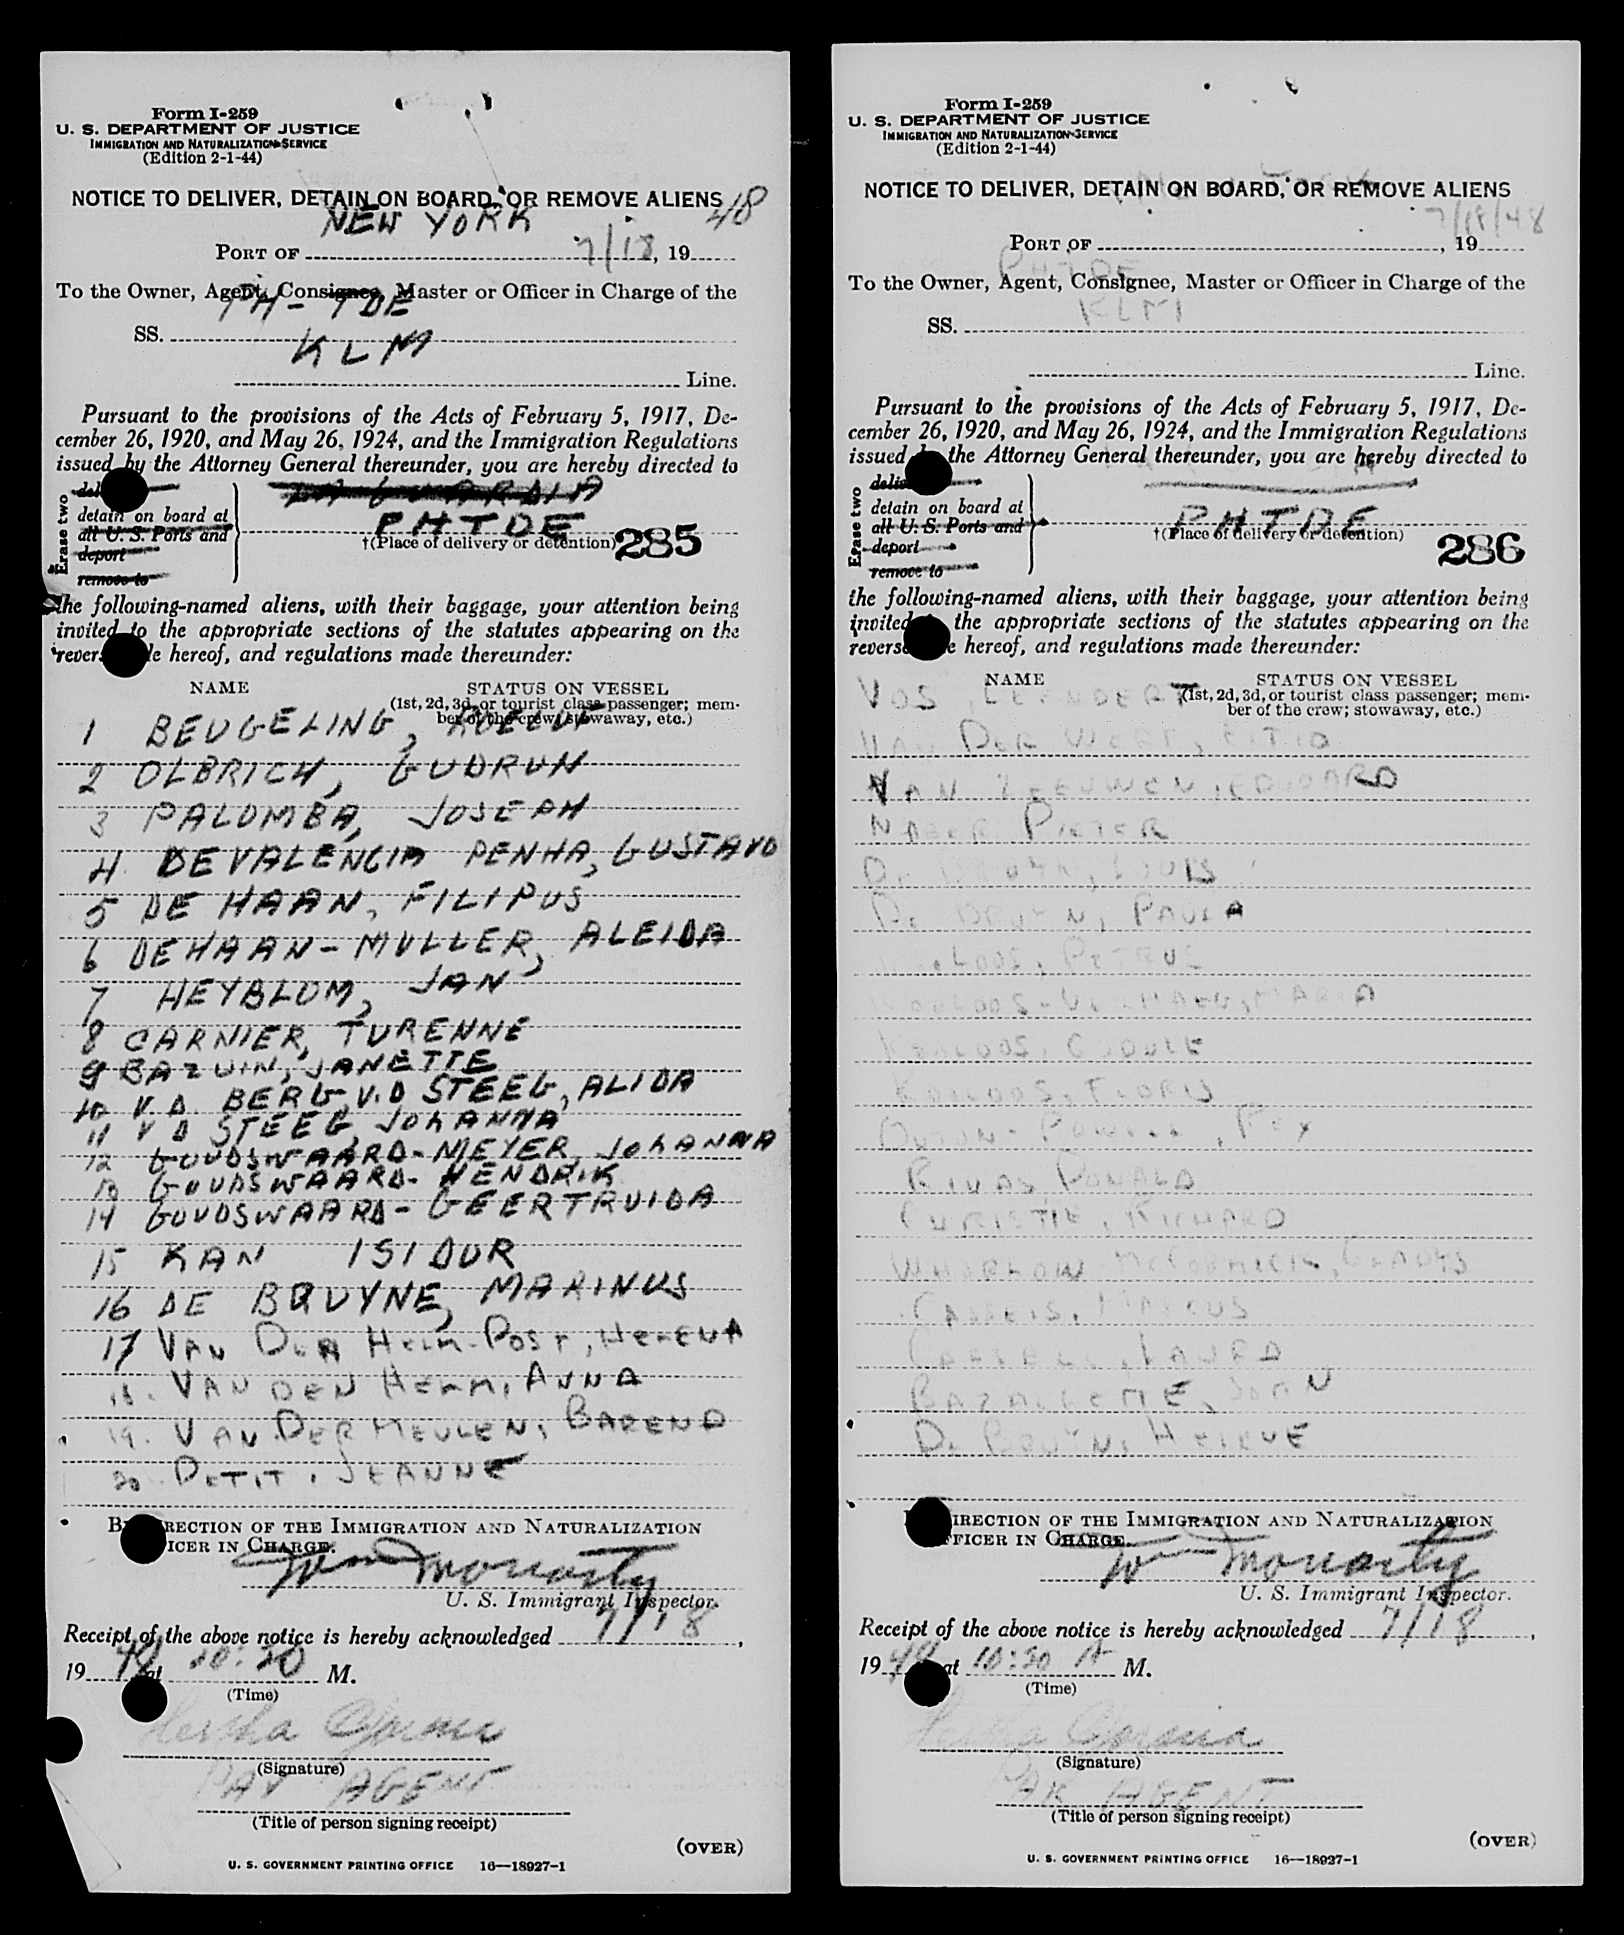 Form I-259
U. S. DEPARTMENT OF JUSTICE
IMMIGRATION AND NATURALIZATION SERVICE
(Edition 2-1-44)
NOTICE TO DELIVER, DETAIN ON BOARD, OR REMOVE ALIENS
NEW YORK 7/18 48
PORT OF , 19
To the Owner, Agent, Consignee, Master or Officer in Charge of the
PH-TDE
SS.
KLM
Line.
Pursuant to the provisions of the Acts of February 5, 1917, De-
cember 26, 1920, and May 26, 1924, and the Immigration Regulations
issued by the Attorney General thereunder, you are hereby directed to
LA GUARDIA
detain on board at
all U. S. Ports and
deport
remove to
Erase two
PHTDE
†(Place of delivery or detention)
285
the following-named aliens, with their baggage, your attention being
invited to the appropriate sections of the statutes appearing on the
hereof, and regulations made thereunder:
NAME STATUS ON VESSEL
(1st, 2d, 3d, or tourist class passenger; mem-
ber of the crew; stowaway, etc.)
1 BEUGELING, ROELOF
2 OLBRICH, GUDRUN
3 PALOMBA, JOSEPH
4 DE VALENCIA PENHA, GUSTAVO
5 DE HAAN, FILIPUS
6 DEHAAN-MULLER, ALEIDA
7 HEYBLOM, JAN
8 CARNIER, TURENNE
9 BAZUIN, JANETTE
10 V. D. BERG V.D STEEG, ALIDA
11 V D STEEG, JOHANNA
12 GOUDSWAARD-MEYER, JOHANNA
13 GOUDSWAARD- HENDRIK
14 GOUDSWAARD- GEERTRUIDA
15 KAN ISIDUR
16 DE BRUYNE, MARINUS
17 VAN DER HELM-POST, HELENA
18. VAN DEN HELM, ANNA
19. VAN DER MEULEN, BAREND
20. PETIT, JEANNE
DIRECTION OF THE IMMIGRATION AND NATURALIZATION
OFFICER IN CHARGE.
Wm Moriarty
U. S. Immigrant Inspector.
Receipt of the above notice is hereby acknowledged 7/18,
1948 at 10:20 M.
(Time)
Hertha
(Signature)
AGENT
(Title of person signing receipt)
(OVER)
U. S. GOVERNMENT PRINTING OFFICE 16—18927-1
Form I-259
U. S. DEPARTMENT OF JUSTICE
IMMIGRATION AND NATURALIZATION SERVICE
(Edition 2-1-44)
NOTICE TO DELIVER, DETAIN ON BOARD, OR REMOVE ALIENS
7/18/48
PORT OF , 19
PHTDE
To the Owner, Agent, Consignee, Master or Officer in Charge of the
KLM
SS.
Line.
Pursuant to the provisions of the Acts of February 5, 1917, De-
cember 26, 1920, and May 26, 1924, and the Immigration Regulations
issued the Attorney General thereunder, you are hereby directed to
detain on board at
all U. S. Ports and
deport
remove to
Erase two
PHTDE
†(Place of delivery or detention)
286
the following-named aliens, with their baggage, your attention being
invited the appropriate sections of the statutes appearing on the
hereof, and regulations made thereunder:
NAME STATUS ON VESSEL
(1st, 2d, 3d, or tourist class passenger; mem-
ber of the crew; stowaway, etc.)
VOS, LEENDERT
VAN DER WERF,
VAN ZEEUWEN, EDUARD
PIETER
LOUIS
DE BRUYN, PAULA
PETRUS
MARIA
KOOLOOS,
KOOLOOS, FLORIS
RIVAS, RONALD
CHRISTIE, RICHARD
WHARLOW McCORMICK, GLADYS
CASSELS, MARCUS
CASSELS, LAURA
BAZALGETTE, JOHN
DE BRUYN,
DIRECTION OF THE IMMIGRATION AND NATURALIZATION
OFFICER IN CHARGE.
Wm Moriarty
U. S. Immigrant Inspector.
Receipt of the above notice is hereby acknowledged 7/18,
1948 at 10:20 A M.
(Time)
(Signature)
AGENT
(Title of person signing receipt)
(OVER)
U. S. GOVERNMENT PRINTING OFFICE 16—18927-1